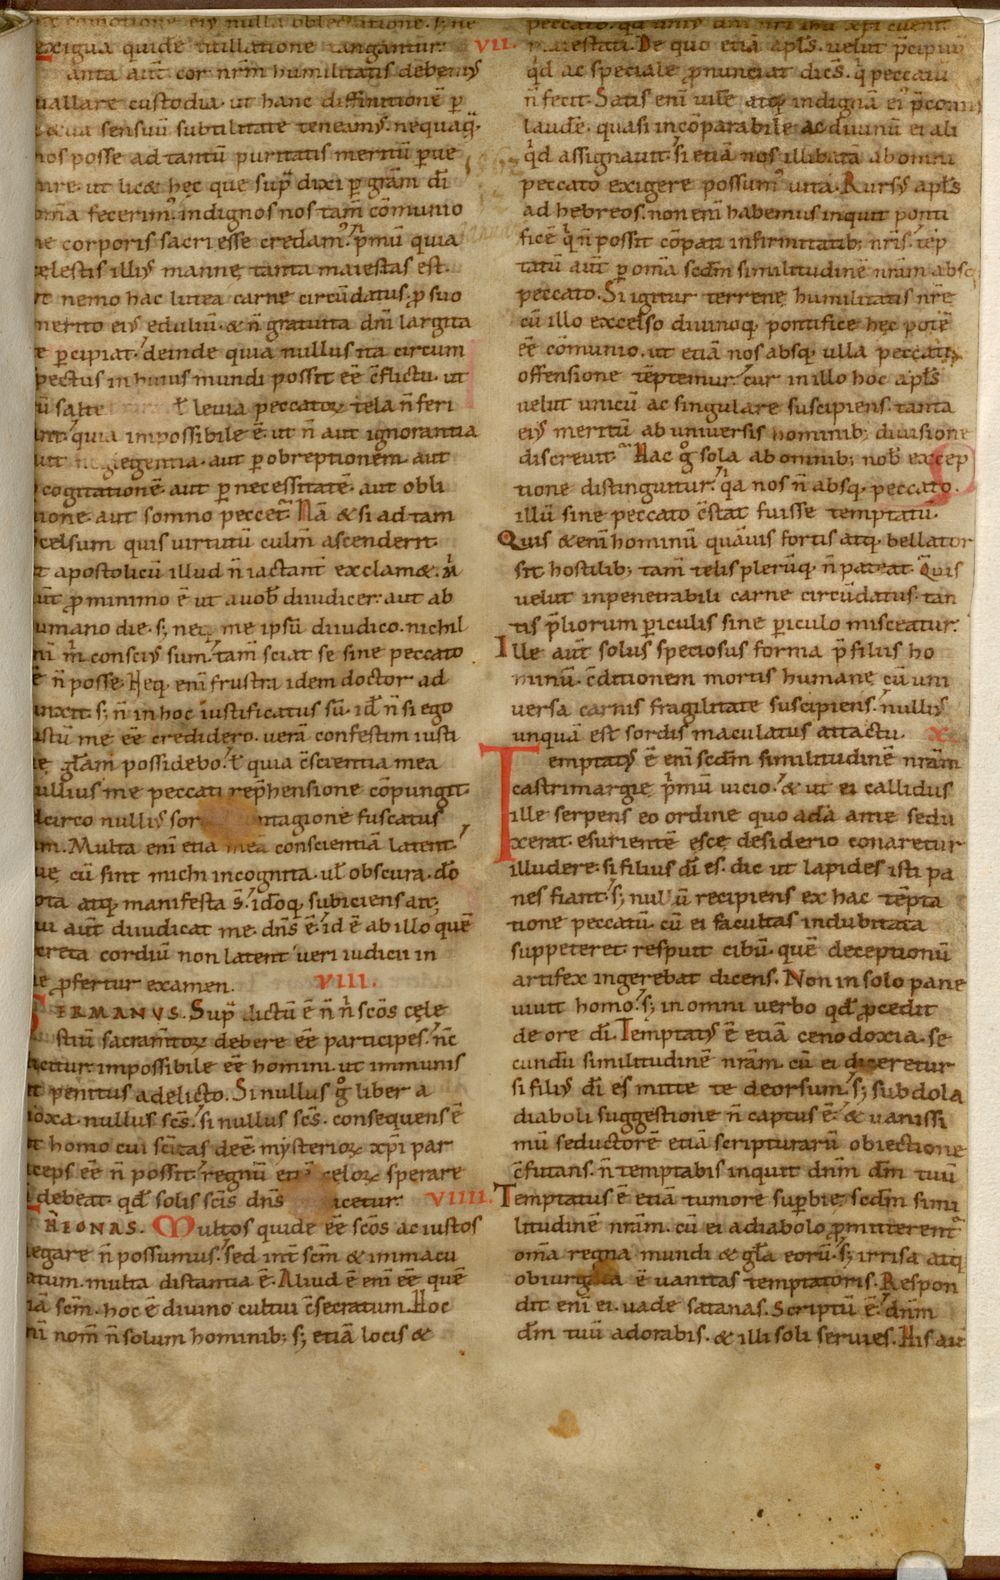 exigua quidē titillatione tangamur. VII.
anta aut̄ cor nr̄m humilitatis debem᷒
uallare custodia. ut hanc diffinitionē ꝑ
sensuū subtilitate teneam᷒. nequaq̄.
nos posse ad tantū puritatis meritū ꝑue
nire. ut licet hęc que sup̄ dixi ꝑ grām dī
om̄a fecerim᷒. indignos nos tam̄ cōmunio
ne corporis sacri esse credam᷒. p̄mū quia
cęlestis illi᷒ mannę tanta maiestas est.
ut nemo hac lutea carne circūdatus. ꝓ suo
merito ei᷒ ediliū. & n̄ gratuita dn̄i largita
te ꝑcipiat. deinde quia nullus ita circum
spectus in huius mundi possit eē c̄flictu. ut
ū salte ł leuia peccatoꝝ tela n̄ feri
ant. quia impossibile ē. ut n̄ aut ignorantia
aut neglegentia. aut ꝑ obreptionem. aut
cogitationē. aut ꝑ necessitatē. aut obli
uione. aut somno peccet. Nā & si ad tam
excelsum quis uirtutū culm̄ ascenderit.
ut apostolicū illud n̄ iactant̄ exclamet. m̄
aūt ꝓ minimo ē ut a uob̄ diiudicer. aut ab
umano die. s; neq; me ipsū diiudico. nichil
eni m̄ consci᷒ sum. tam̄ sciat se sine peccato
eē n̄ posse. Neq. eni frustra idem doctor ad
iunxit. s; n̄ in hoc iustificatus sū. id ē n̄ si ego
iustū me eē credidero. uerā confestim iusti
tię gl̄am possidebo. ł quia c̄scientia mea
nullius me peccati rep̄hensione cōpungit.
idcirco nulli᷒ sor ntagione fuscatus
sum. Multa eni etiā meā conscientiā latent.
quę cū sint michi incognita. ul̄ obscura. dō
nota atq. manifesta s̄. idōq. subiciens ait;
qui aut̄ diiudicat me. dn̄s ē. id ē ab illo quē
secreta cordiū non latent ueri iudicii in
me ꝓfertur examen. VIII.
GERMANVS. Sup̄ dictū ē n̄ n̄ sc̄os cęle
stiū sacram̄toꝝ debere eē participes. nc̄
adicitur impossibile eē homini. ut immunis
sit penitus a delicto. Si nullus g̊ liber a
noxa. nullus sc̄s. si nullus sc̄s. consequens ē
ut homo cui sc̄itas deē. mysterioꝝ xp̄i par
ticeps eē n̄ possit. regnū eti cęloꝝ sperare
n debeat. qd̄ solis sc̄is dn̄s icetur. VIIII.
THEONAS. Multos quidē eē sc̄os ac iustos
negare n̄ possumus. sed int̄ sc̄m & immacu
latum. multa distantia ē. Aliud ē eni eē quē
iā sc̄m. hoc ē diuino cultui c̄secratum. Hoc
eni nom̄ n̄ solum hominib; s; etiā locis &
maiestati. De quo etiā apl̄s. uelut p̄cipuū
qd̄ ac speciale ꝓnunciat dicēs. q̄ peccatū
n̄ fecit. Satis eni uile atq. indignā ei᷒ p̄coni
laudē. quasi incōparabile ac diuinū ei ali
qd̄ assignauit. si etiā nos illibatā ab omni
peccato exigere possum᷒ uitā. Rurs᷒ apl̄s
ad hebreos. non eni habemus inquit ponti
ficē q̄ n̄ possit cōpati infirmitatib; nr̄is. tēp
tatū aut̄ ꝑ om̄ia scd̄m similitudinē nr̄am absq
peccato. Si igitur terrenę humilitatis nr̄ę
cū illo excelso diuinoq. pontifice hęc potē
eē cōmunio. ut etiā nos absq. ulla peccati
offensione tēptemur. cur in illo hoc apl̄s
uelut unicū ac singulare suscipiens. tanta
ei᷒ meritū ab uniuersis hominib; diuisione
discreuit. Hac g̊ sola ab omnib; nob̄ excep
tione distinguitur. qa nos n̄ absq. peccato.
illū sine peccato c̄stat fuisse temptatū.
Quis & eni hominū quāuis fortis atq. bellator
sit. hostilib; tam̄ telis plerūq. n̄ pateat. Q̄uis
uelut inpenetrabili carne circūdatus. tan
tis p̄liorum ꝑiculis sine ꝑiculo misceatur.
Ille aut̄ solus speciosus forma p̄ filiis ho
minū. c̄ditionem mortis humanę cū uni
uersa carnis fragilitate suscipiens. nulli᷒
unquā est sordis maculatus attactu. X.
Temptat᷒ ē eni scd̄m similitudinē nr̄am
castrimargię p̄mū uicio. & ut ei callidus
ille serpens eo ordine quo adā ante sedu
xerat. esurientē escę desiderio conaretur
illudere. si filius dī es. dic ut lapides isti pa
nes fiant. s; nullū recipiens ex hac tēpta
tione peccatū. cū ei facultas indubitata
suppeteret. respuit cibū. quē deceptionū
artifex ingerebat dicens. Non in solo pane
uiuit homo. s; in omni uerbo qd̄ ꝓcedit
de ore dī. Temptat᷒ ē etiā cenodoxia. se
cundū similitudinē nr̄am. cū ei diceretur
si fili᷒ dī es mitte te deorsum. s; subdola
diaboli suggestione n̄ captus ē. & uanissi
mū seductorē etiā scripturarū obiectione
c̄futans. n̄ temptabis inquit dn̄m dm̄ tuū.
Temptatus ē etiā tumore suꝑbię. scd̄m simi
litudinē nr̄am. cū ei a diabolo ꝓmitterent̄
om̄a regna mundi & gl̄a eorū. s; irrisa atq.
obiurgata ē uanitas temptatoris. Respon
dit eni ei. uade satanas. Scriptū ē. dn̄m
dm̄ tuū adorabis. & illi soli seruies. His aut̄